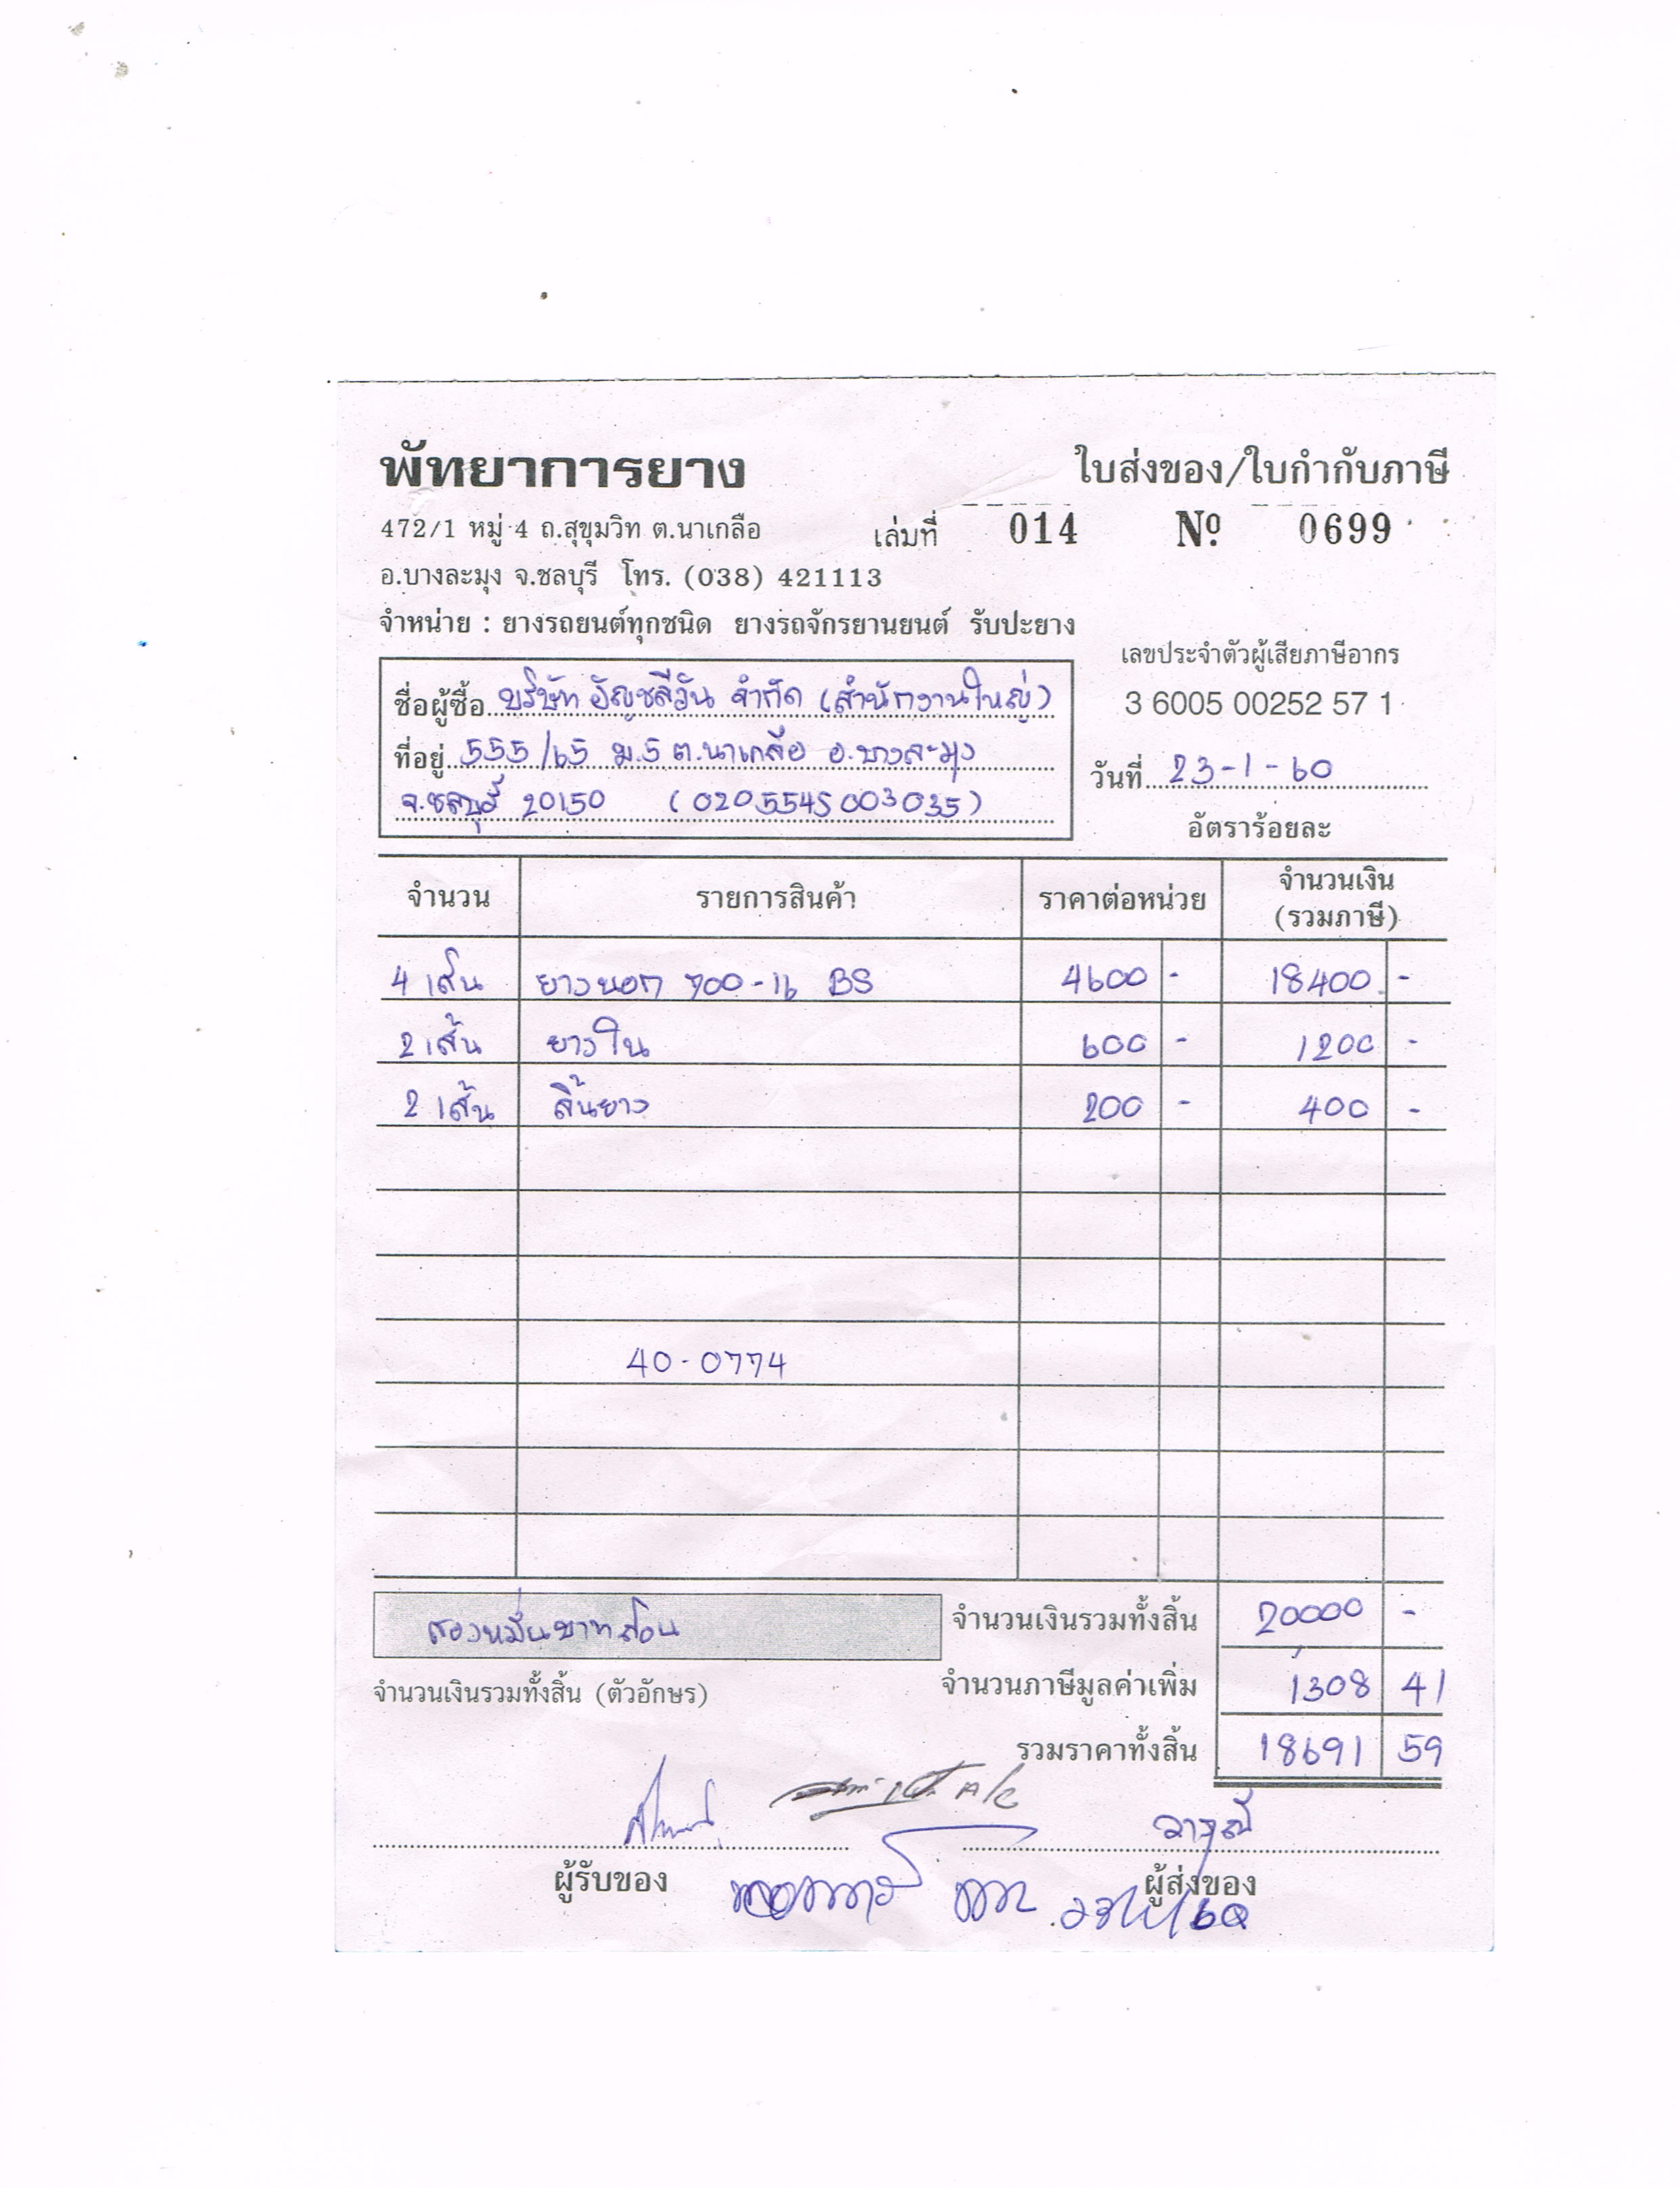 พัทยาการยาง
ใบส่งของ/ใบกำกับภาษี
472/1 หมู่ 4 ถ.สุขุมวิท ต.นาเกลือ
เล่มที่ 014 Nº 0699
อ.บางละมุง จ.ชลบุรี โทร. (038) 421113
จำหน่าย : ยางรถยนต์ทุกชนิด ยางรถจักรยานยนต์ รับปะยาง
เลขประจำตัวผู้เสียภาษีอากร
3 6005 00252 57 1
ชื่อผู้ซื้อ บริษัท อัญชลีวัน จำกัด (สำนักงานใหญ่)
ที่อยู่ 555/65 ม.5 ต.นาเกลือ อ.บางละมุง
จ.ชลบุรี 20150 (0205545003035)
วันที่ 23-1-60
อัตราร้อยละ
จำนวน รายการสินค้า ราคาต่อหน่วย จำนวนเงิน (รวมภาษี)
4 เส้น ยางนอก 700-16 BS 4600 - 18400 -
2 เส้น ยางใน 600 - 1200 -
2 เส้น ลิ้นยาง 200 - 400 -
40-0774
สองหมื่นบาทถ้วน
จำนวนเงินรวมทั้งสิ้น 20000 -
จำนวนเงินรวมทั้งสิ้น (ตัวอักษร)
จำนวนภาษีมูลค่าเพิ่ม 1308 41
รวมราคาทั้งสิ้น 18691 59
ผู้รับของ
ผู้ส่งของ